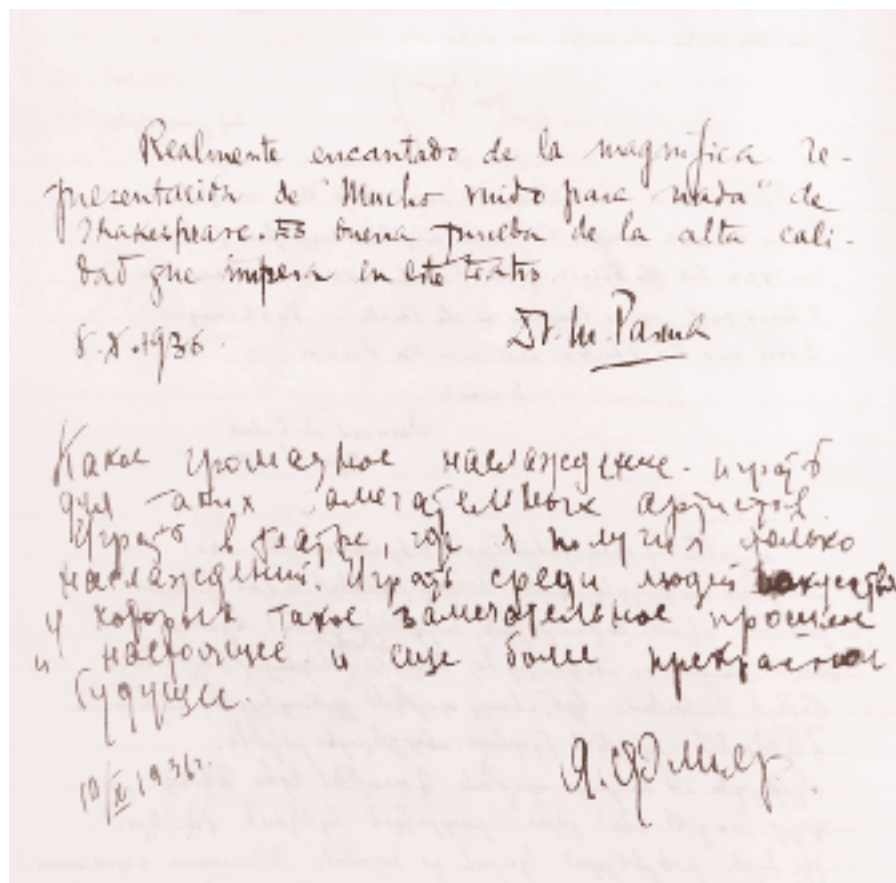 Realmente encantado de la magnífica re-
presentación de "Mucho ruido para nada" de
Shakespeare. Es buena prueba de la alta cali-
dad que impera en este teatro
8.X.1936.
Dr. M.
Какое громадное наслаждение - играть
для таких замечательных артистов
Играть в театре, где я получил только
наслаждений Играть среди людей искусства
у которых такое замечательное прошлое
и настоящее и еще более прекрасное
будущее.
10/X 1936г.
Я.